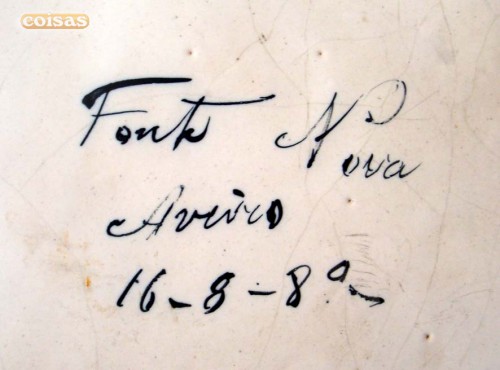 coisas
Fonte Nova
Aveiro
16-8-82